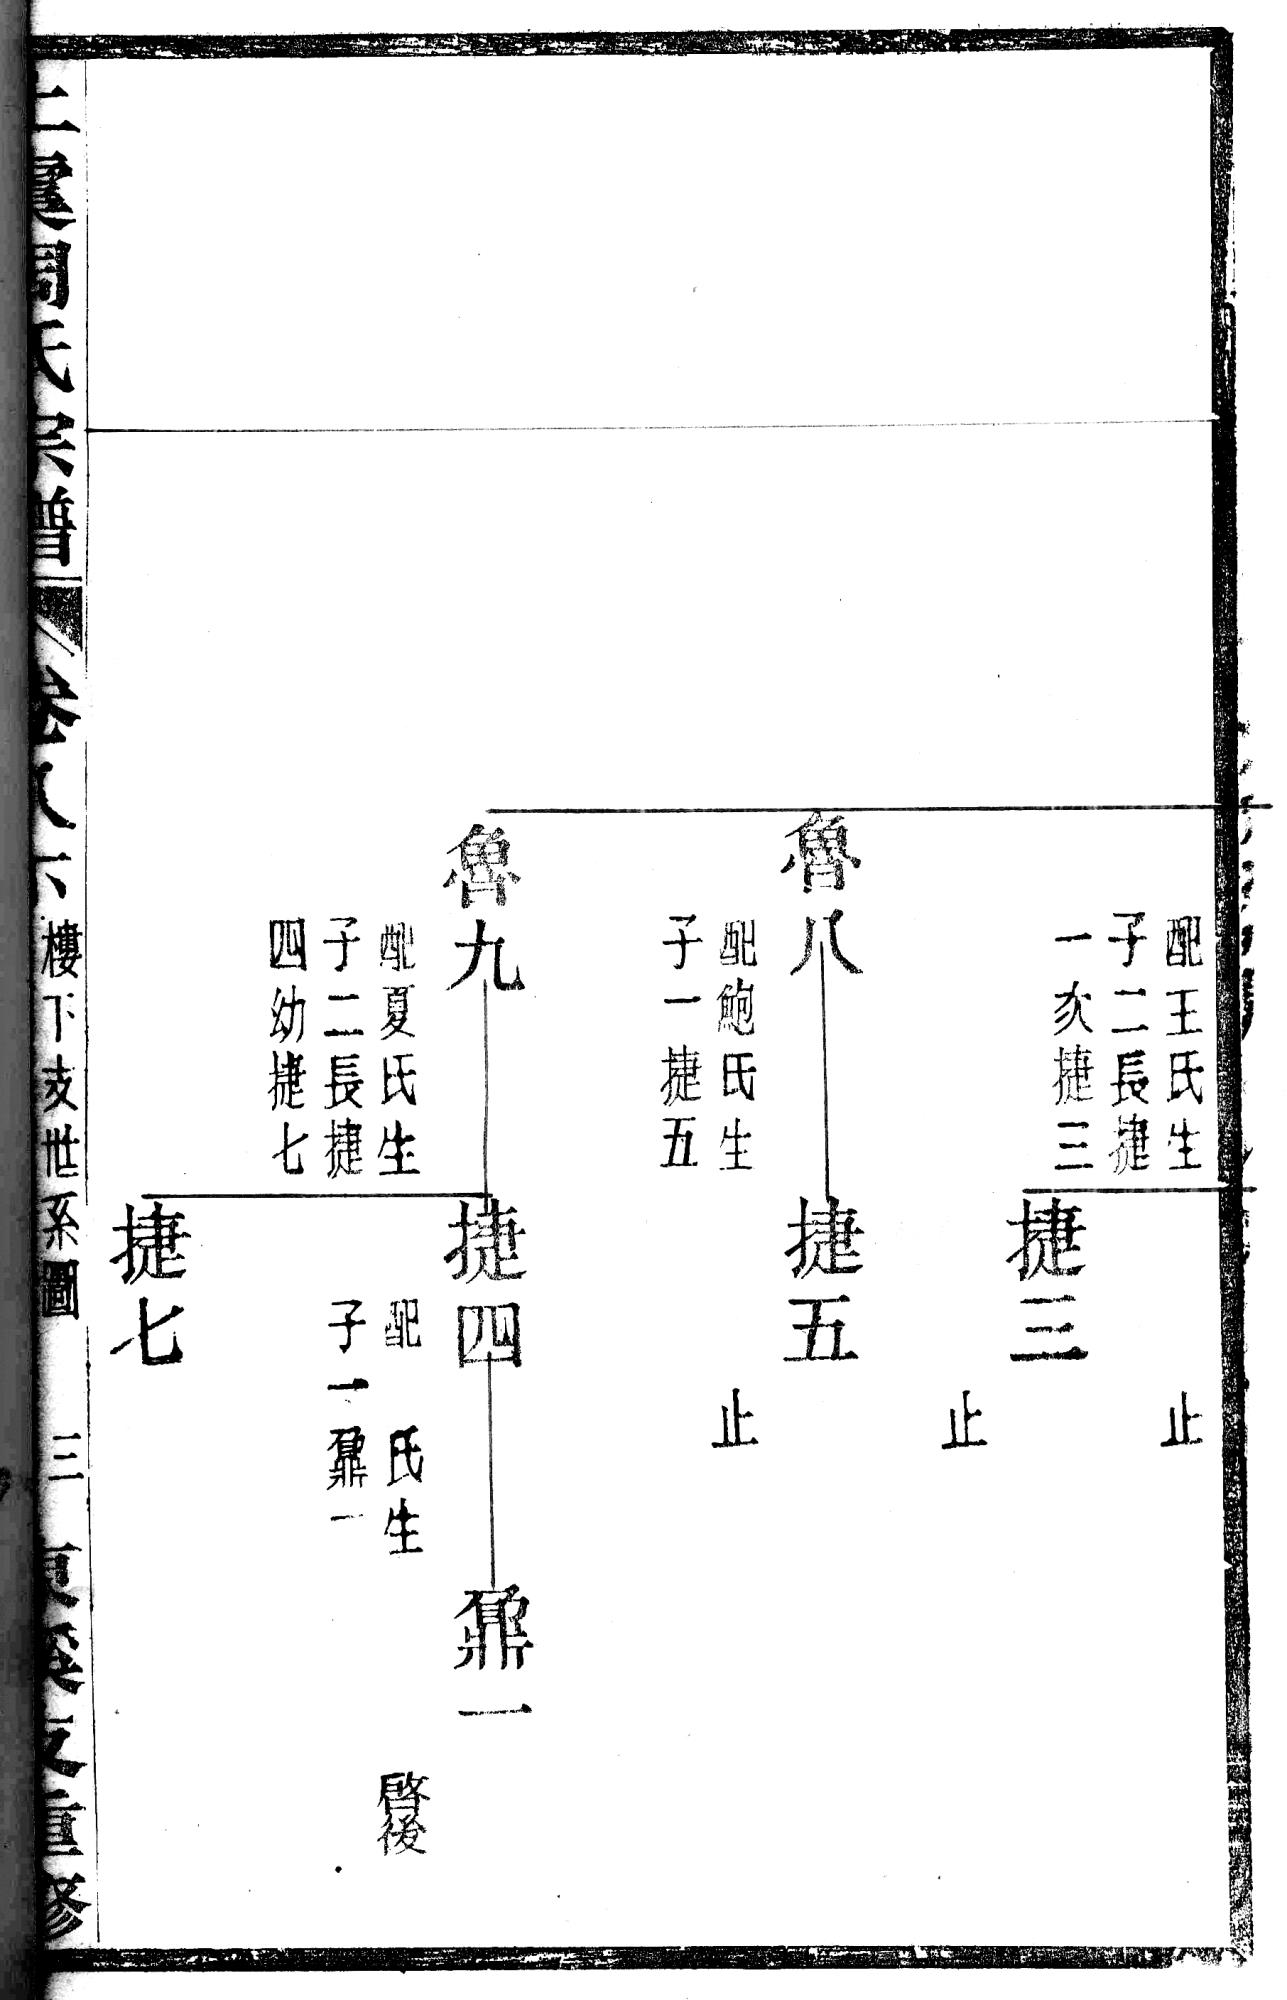 配王氏生
子二長捷
一次捷三
捷三
止
止
魯八
配鮑氏生
子一捷五
捷五
止
魯九
配夏氏生
子二長捷
四幼捷七
捷四
配　氏生
子一鼐一
鼐一
啓後
捷七
上虞周氏宗譜
卷八六
樓下支世系圖
三
重修